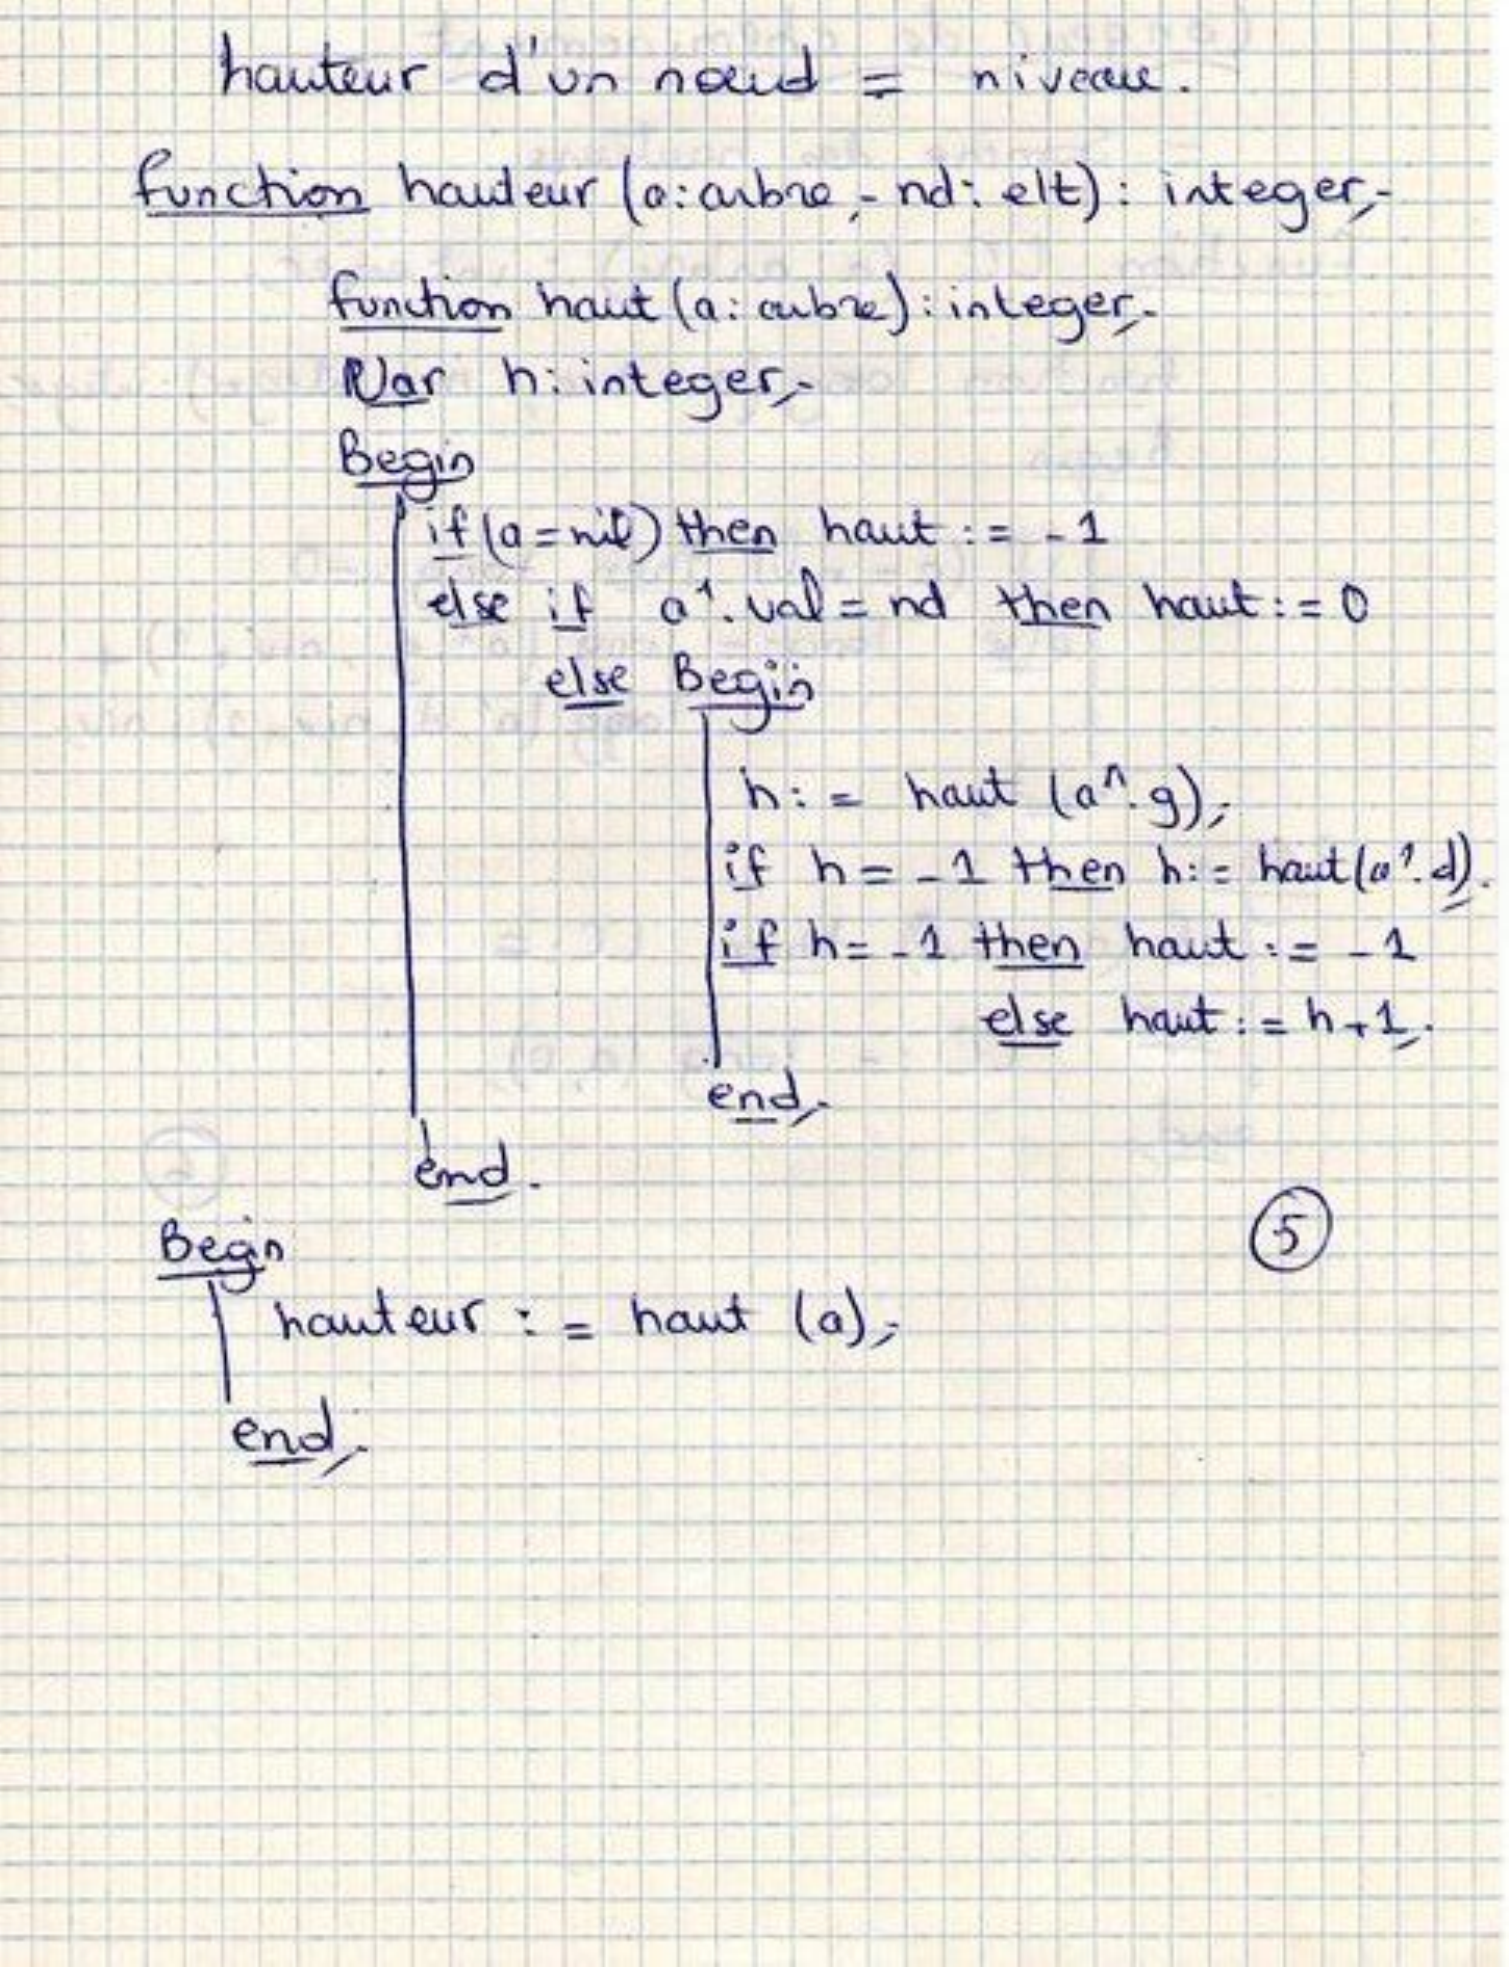 hauteur d'un nœud = niveau.
function hauteur (a: arbre ; nd: elt): integer;
function haut (a: arbre): integer;
Var h: integer;
Begin
if (a = nil) then haut := -1
else if a^.val = nd then haut := 0
else Begin
h := haut (a^.g);
if h = -1 then h := haut (a^.d);
if h = -1 then haut := -1
else haut := h+1;
end;
end.
5
Begin
hauteur := haut (a);
end;